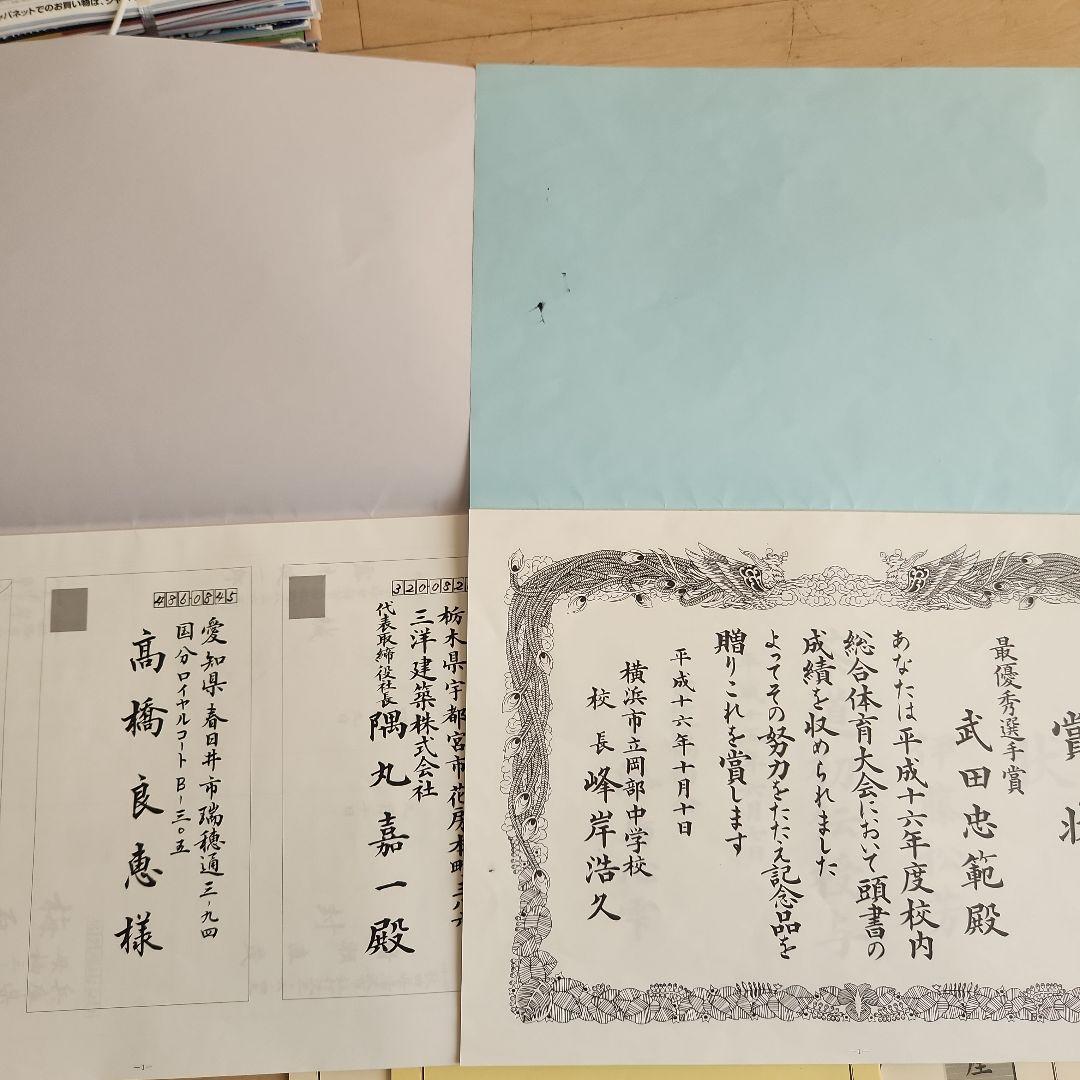 パネットでのお買い物は、ジャ
賞状
最優秀選手賞
武田忠範殿
あなたは平成十六年度校内
総合体育大会において頭書の
成績を収められました
よってその努力をたたえ記念品を
贈りこれを賞します
平成十六年十月十日
横浜市立岡部中学校
校長 峰岸浩久
320082
栃木県宇都宮市花房本町三八六
三洋建築株式会社
代表取締役社長 隅丸嘉一殿
4860845
愛知県春日井市瑞穂通三-九四
国分ロイヤルコートB-三〇五
高橋良恵様
—1—
—1—